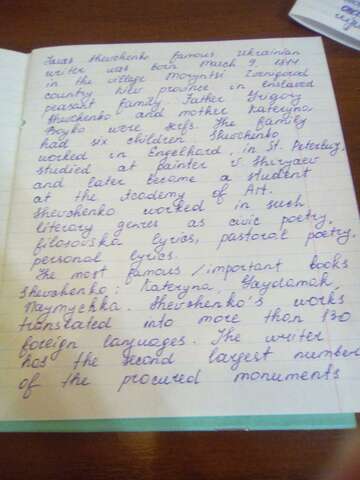 Taras Shevchenko famous Ukrainian
writer was born March 9, 1814
in the village Moryntsi Zvenigorod
country Kiev province in enslaved
peasant family. Father Grigory
Shevchenko and mother Kateryna
Boyko were serfs. The family
had six children. Shevchenko
worked in Engelhard in St. Peterburg,
studied at painter V. Shiryaev
and later became a student
at the Academy of Art.
Shevchenko worked in such
literary genres as civic poetry,
filosovska lyrics, pastoral poetry,
personal lyrics.
The most famous/important books
Shevchenko: Kateryna, Haydamak,
Naymychka. Shevchenko's works
translated into more than 130
foreign languages. The writer
has the second largest number
of the procured monuments